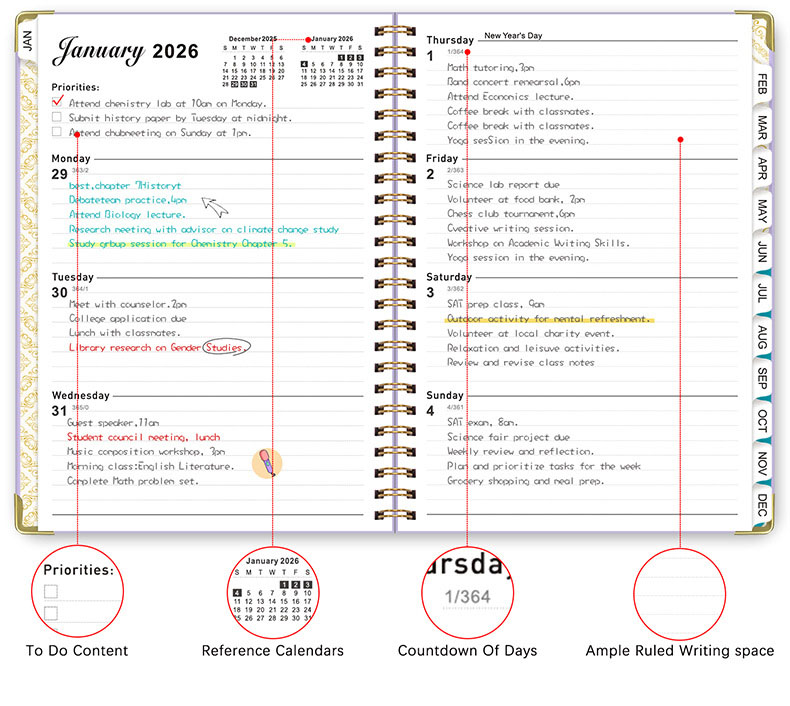 JAN
January 2026
December 2025
S M T W T F S
1 2 3 4 5 6
7 8 9 10 11 12 13
14 15 16 17 18 19 20
21 22 23 24 25 26 27
28 29 30 31
January 2026
S M T W T F S
1 2 3
4 5 6 7 8 9 10
11 12 13 14 15 16 17
18 19 20 21 22 23 24
25 26 27 28 29 30 31
Priorities:
Attend chemistry lab at 10am on Monday.
Submit history paper by Tuesday at midnight.
Attend chubmeeting on Sunday at 1pm.
Monday
29 363/2
best,chapter 7Historyt
Debateteam practice,4pm
Attend Biology lecture.
Research meeting with advisor on climate change study
Study grbup session for Chemistry Chapter 5.
Tuesday
30 364/1
Meet with counselor.2pm
College application due
Lunch with classmates.
Library research on Gender Studies.
Wednesday
31 365/0
Guest speaker,11am
Student council meeting, lunch
Music composition workshop, 3pm
Morning class:English Literature.
Complete Math problem set.
Thursday New Year's Day
1 1/364
Math tutoring,3pm
Band concert rehearsal,6pm
Attend Economics lecture.
Coffee break with classmates.
Coffee break with classmates.
Yoga sesSion in the evening.
Friday
2 2/363
Science lab report due
Volunteer at food bank, 2pm
Chess club tournament,6pm
Cveative writing session.
Workshop on Academic Wviting Skills.
Yoga session in the evening.
Saturday
3 3/362
SAT prep class, 9am
Outdoor activity for mental refreshment.
Volunteer at local charity event.
Relaxation and leisuve activities.
Review and revise class notes
Sunday
4 4/361
SAT exam, 8am.
Science fair project due
Weekly review and reflection.
Plan and prioritize tasks for the week
Grocery shopping and meal prep.
FEB
MAR
APR
MAY
JUN
JUL
AUG
SEP
OCT
NOV
DEC
Priorities:
January 2026
S M T W T F S
1 2 3
4 5 6 7 8 9 10
11 12 13 14 15 16 17
18 19 20 21 22 23 24
25 26 27 28 29 30 31
ursday
1/364
To Do Content
Reference Calendars
Countdown Of Days
Ample Ruled Writing space